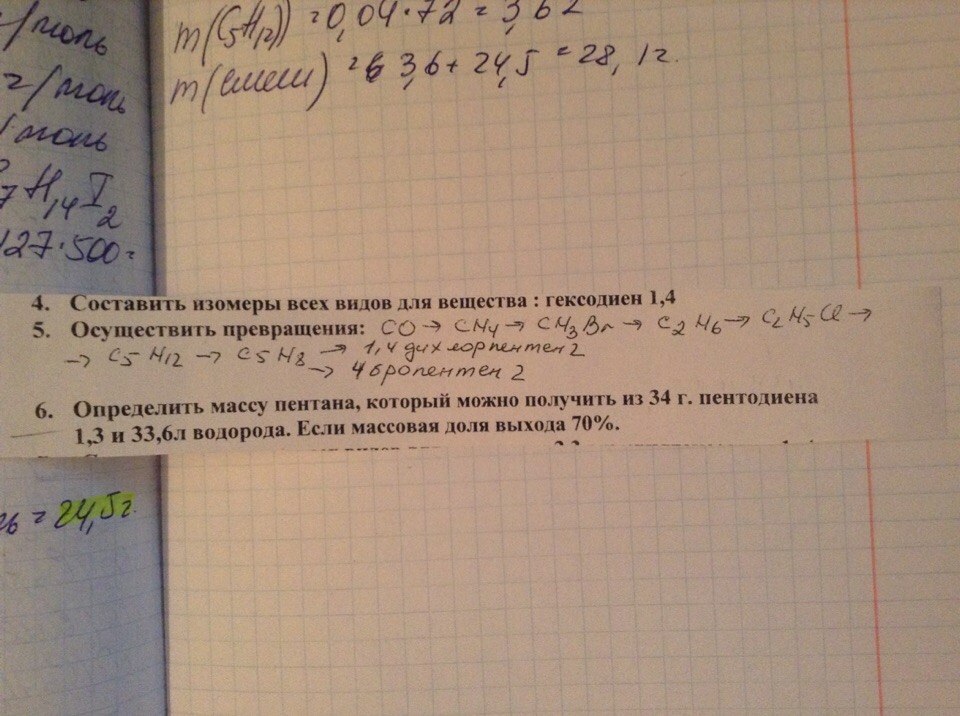 г/моль
г/моль
/моль
7H14I2
127·500=
26 = 24,5г.
m(C5H12) = 0,04·72 = 3,62
m(смеси) = 3,6 + 24,5 = 28,1г.
4. Составить изомеры всех видов для вещества : гексодиен 1,4
5. Осуществить превращения: CO → CH4 → CH3Br → C2H6 → C2H5Cl →
→ C5H12 → C5H8 → 1,4 дихлорпентен 2
→ 4 бропентен 2
6. Определить массу пентана, который можно получить из 34 г. пентодиена
1,3 и 33,6л водорода. Если массовая доля выхода 70%.